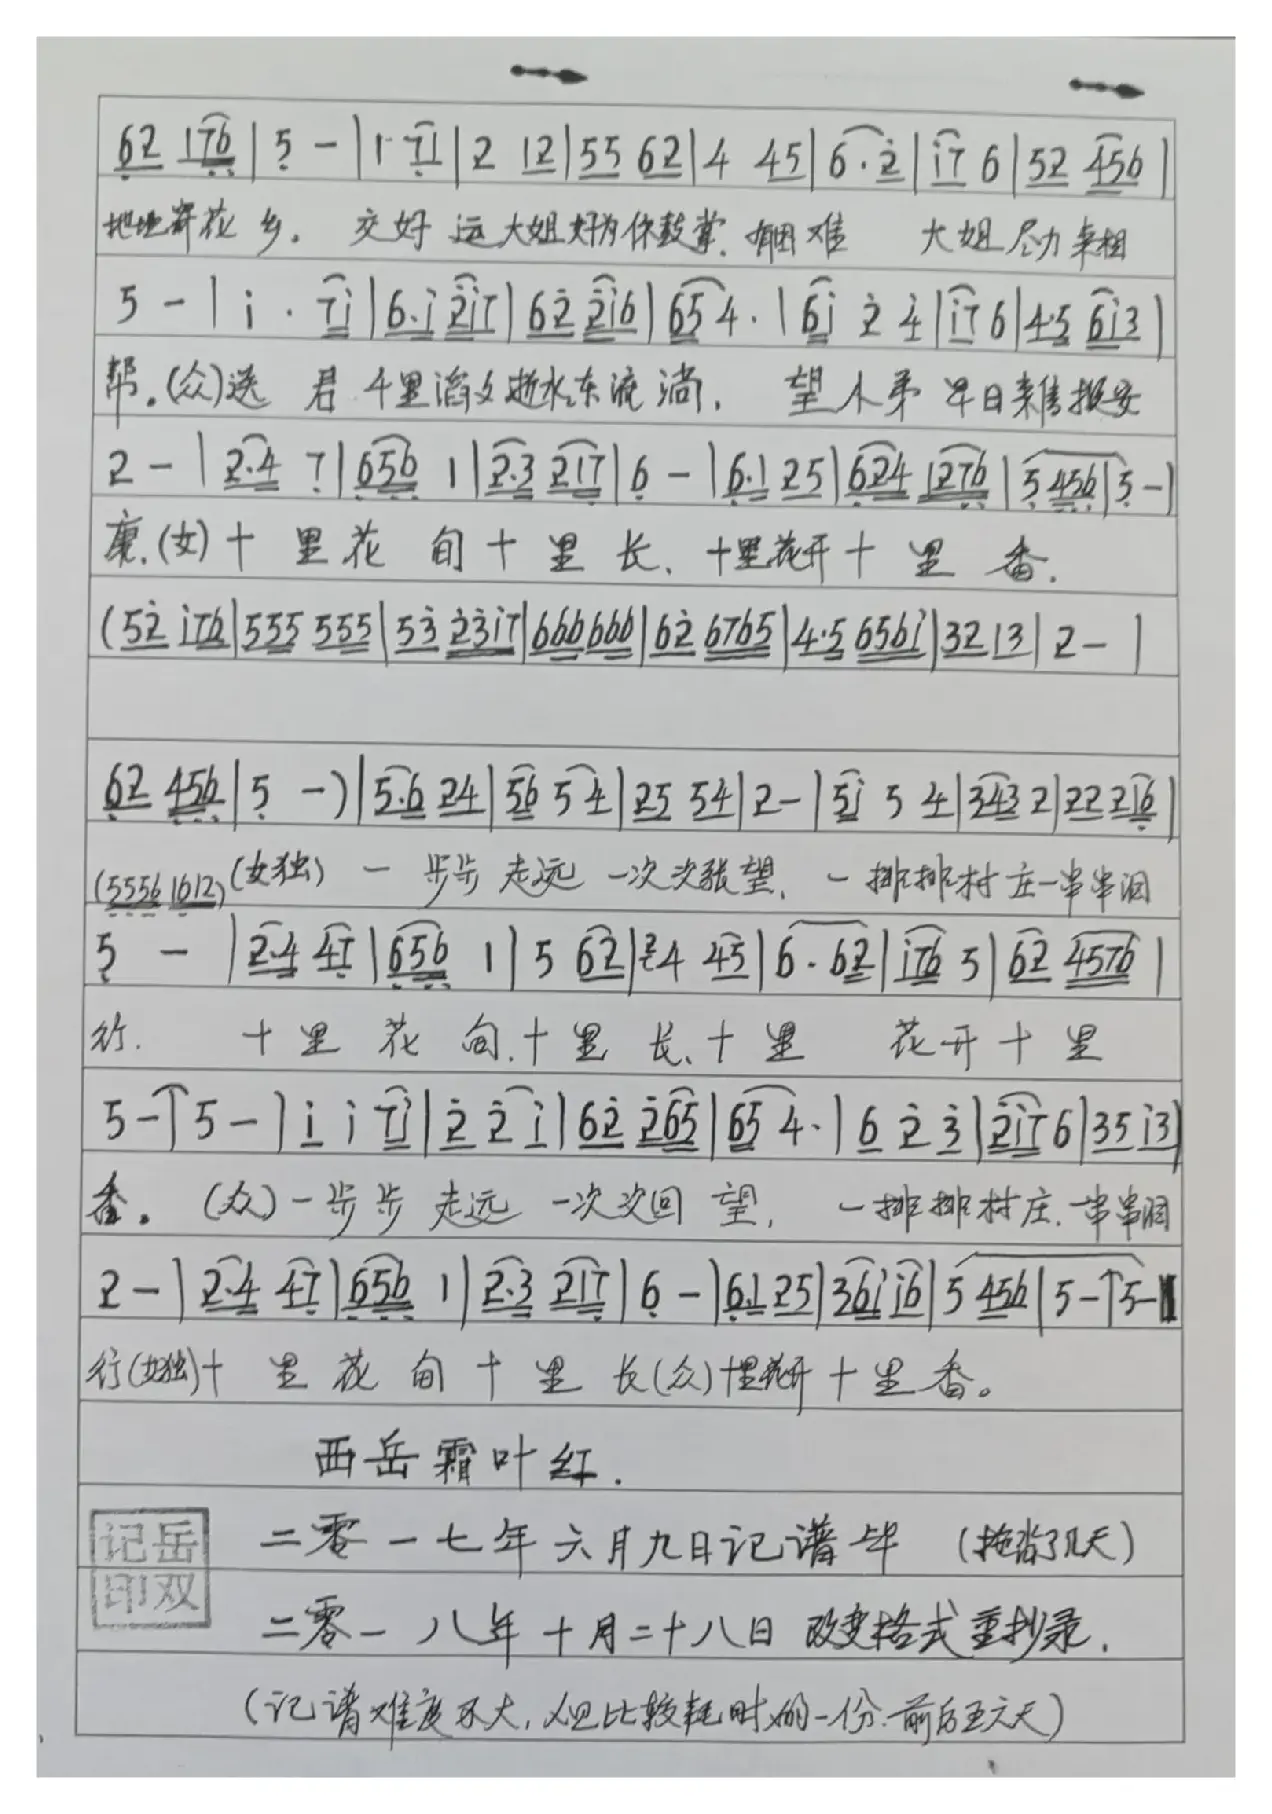 62 176 | 5 - | 1· 71 | 2 12 | 55 62 | 4 45 | 6·2 | i7 6 | 52 456 |
地地寄花乡。交好运大姐好为你鼓掌.有困难 大姐尽力来相
5 - | i · 7i | 6·i 2i7 | 62 2i6 | 65 4· | 6i 2 4 | i7 6 | 4·5 6i3 |
帮。(众)送君千里滔文逝水东流淌, 望小弟早日来售报安
2 - | 2·4 7 | 656 1 | 2·3 217 | 6 - | 6·1 25 | 624 1276 | 5 456 | 5 - |
康.(女)十里花甸十里长、十里花开十里香.
(52 i76 | 555 555 | 53 23i7 | 666 666 | 62 6765 | 4·5 656i | 32 13 | 2 - |
62 456 | 5 -) | 5·6 24 | 56 5 4 | 25 54 | 2 - | 5i 5 4 | 343 2 | 22 216 |
(5556 1612)(女独) 一步步走远一次次张望, 一排排村庄一串串泪
5 - | 2·4 47 | 656 1 | 5 62 | 24 45 | 6·62 | i76 5 | 62 4576 |
行. 十里花甸.十里长、十里花开十里
5 - ↑ 5 - | i i 7i | 2 2 i | 62 265 | 65 4· | 6 2 3 | 2i7 6 | 35 i3 |
香。(众)一步步走远一次次回望, 一排排村庄.一串串泪
2 - | 2·4 47 | 656 1 | 2·3 217 | 6 - | 6·1 25 | 36i i6 | 5 456 | 5 - ↑ 5 - ‖
行(女独)十里花甸十里长(众)十里花开十里香。
西岳霜叶红.
二零一七年六月九日记谱毕 (拖沓了几天)
二零一八年十月二十八日改变格式重抄录.
(记谱难度不大,但比较耗时的一份.前后五六天)
记岳
印双